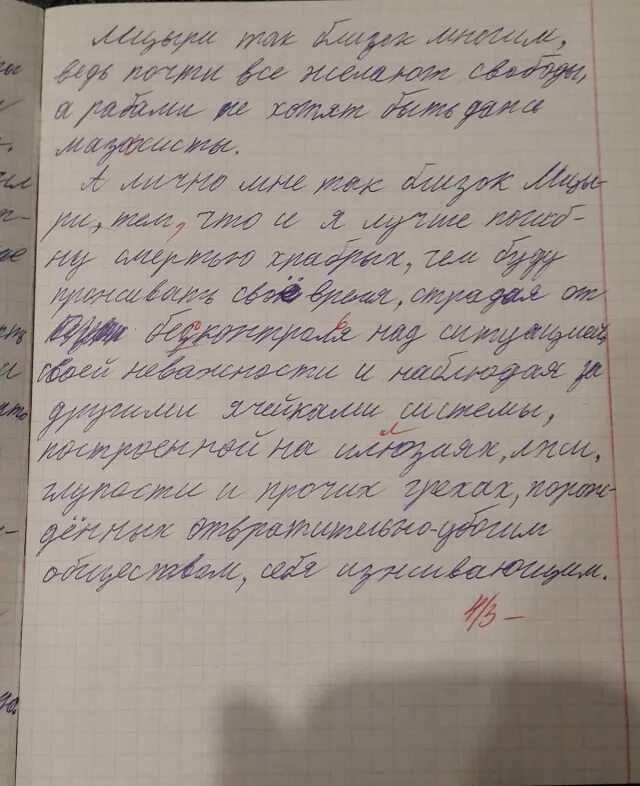 Мцыри так близок многим,
ведь почти все желают свободы,
а рабами не хотят быть даже
мазохисты.
А лично мне так близок Мцы-
ри, тем, что и я лучше погиб-
ну смертью храбрых, чем буду
проживать своё время, страдая от
бесконтроля над ситуацией,
своей неважности и наблюдая за
другими ячейками системы,
построенной на илюзиях, лжи,
глупости и прочих грехах, порож-
дённых отвратительно-убогим
обществом, себя изживающим.
4/3-